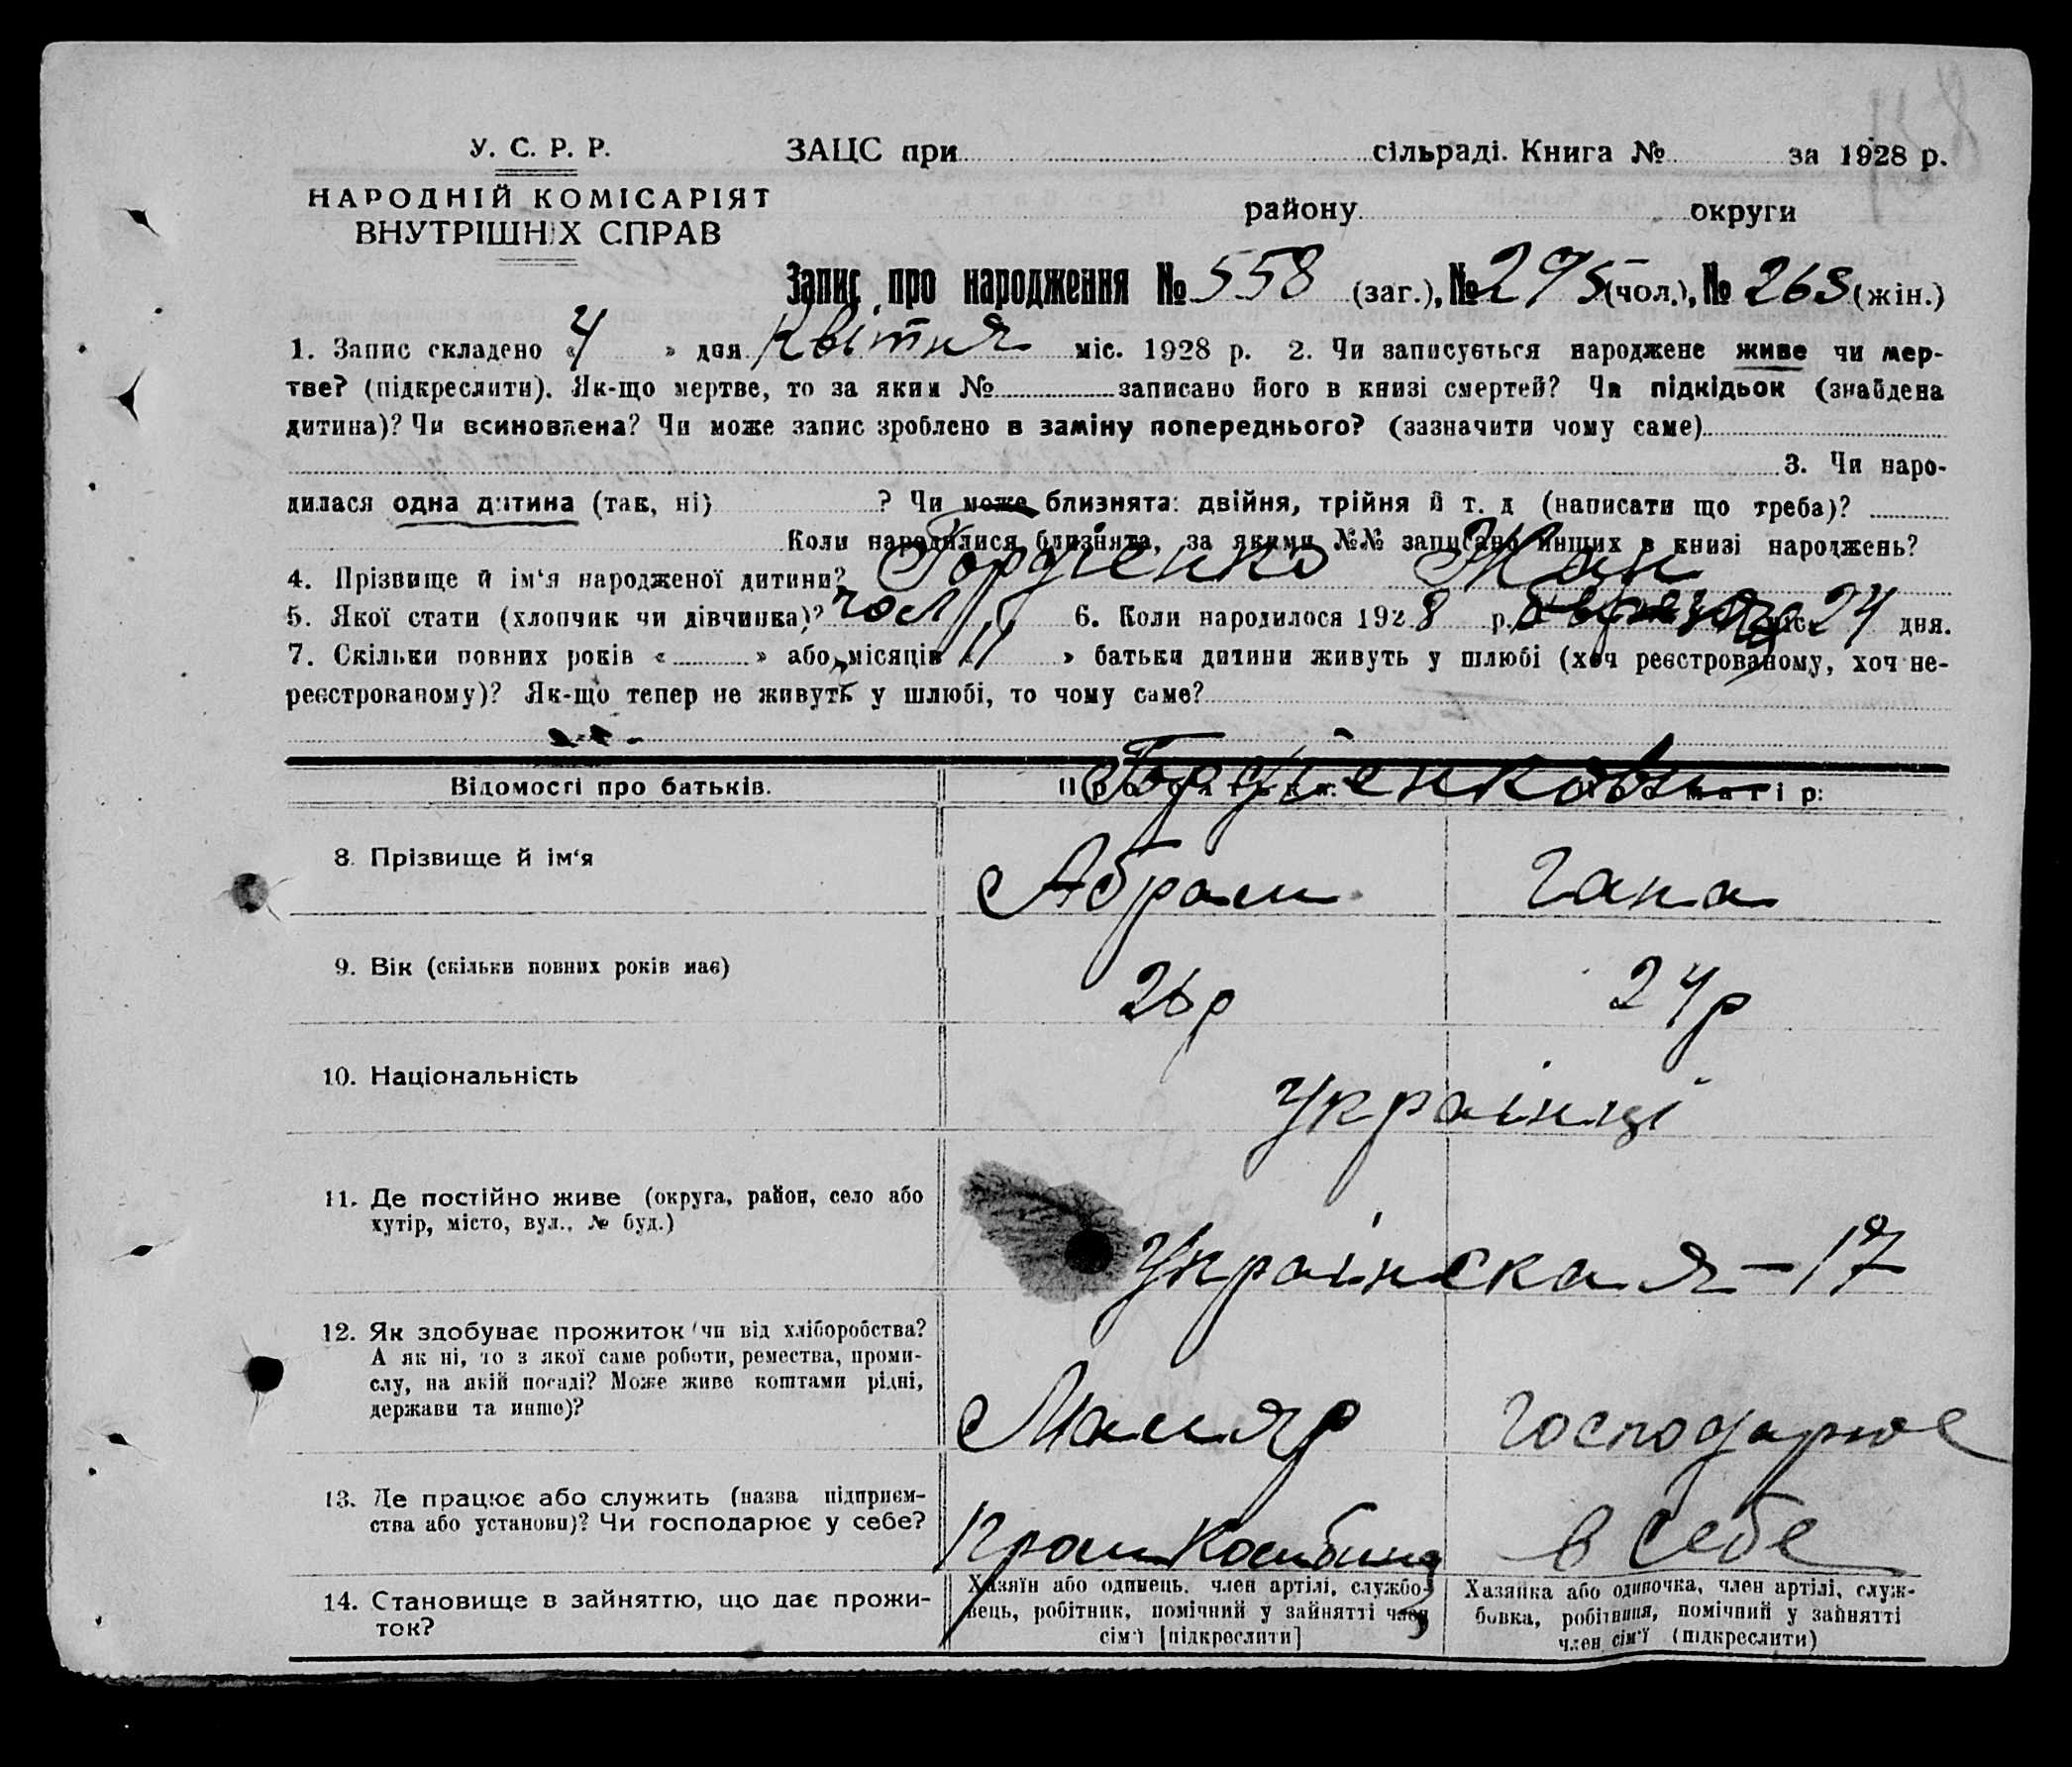 84
У. С. Р. Р.
ЗАЦС при сільраді. Книга № за 1928 р.
НАРОДНІЙ КОМІСАРІЯТ
ВНУТРІШНІХ СПРАВ
району округи
Запис про народження № 558 (заг.), № 295 (чол.), № 263 (жін.)
1. Запис складено « 4 » дня Квітня міс. 1928 р. 2. Чи записується народжене живе чи мер-
тве? (підкреслити). Як-що мертве, то за яким № записано його в книзі смертей? Чи підкідьок (знайдена
дитина)? Чи всиновлена? Чи може запис зроблено в заміну попереднього? (зазначити чому саме)
3. Чи наро-
дилася одна дитина (так, ні) ? Чи може близнята: двійня, трійня й т. д (написати що треба)?
Коли народилися близнята, за якими №№ записано инших в книзі народжень?
4. Прізвище й ім‘я народженої дитини? Гордієнко Жан
5. Якої стати (хлопчик чи дівчинка)? чол 6. Коли народилося 1928 р. березня міс. 24 дня.
7. Скільки повних років « » або місяців « 11 » батьки дитини живуть у шлюбі (хоч реєстрованому, хоч не-
реєстрованому)? Як-що тепер не живуть у шлюбі, то чому саме?
Відомості про батьків. Про батька: Про матір:
Гордієнкови
8. Прізвище й ім‘я Абрам Гана
9. Вік (скільки повних років має) 26 р 24 р
10. Національність Українці
11. Де постійно живе (округа, район, село або
хутір, місто, вул., № буд.)
Украінская – 17
12. Як здобуває прожиток чи від хліборобства?
А як ні, то з якої саме роботи, ремества, проми-
слу, на якій посаді? Може живе коштами рідні,
держави та инше)?
Маляр Господарює
13. Де працює або служить (назва підприєм-
ства або установи)? Чи господарює у себе?
Пром Комбинат в себе
14. Становище в зайняттю, що дає прожи-
ток?
Хазяїн або одинець, член артілі, службо-
вець, робітник, помічний у зайнятті член
сім‘ї [підкреслити]
Хазяйка або одиночка, член артілі, служ-
бовка, робітниця, помічний у зайнятті
член сім‘ї (підкреслити)